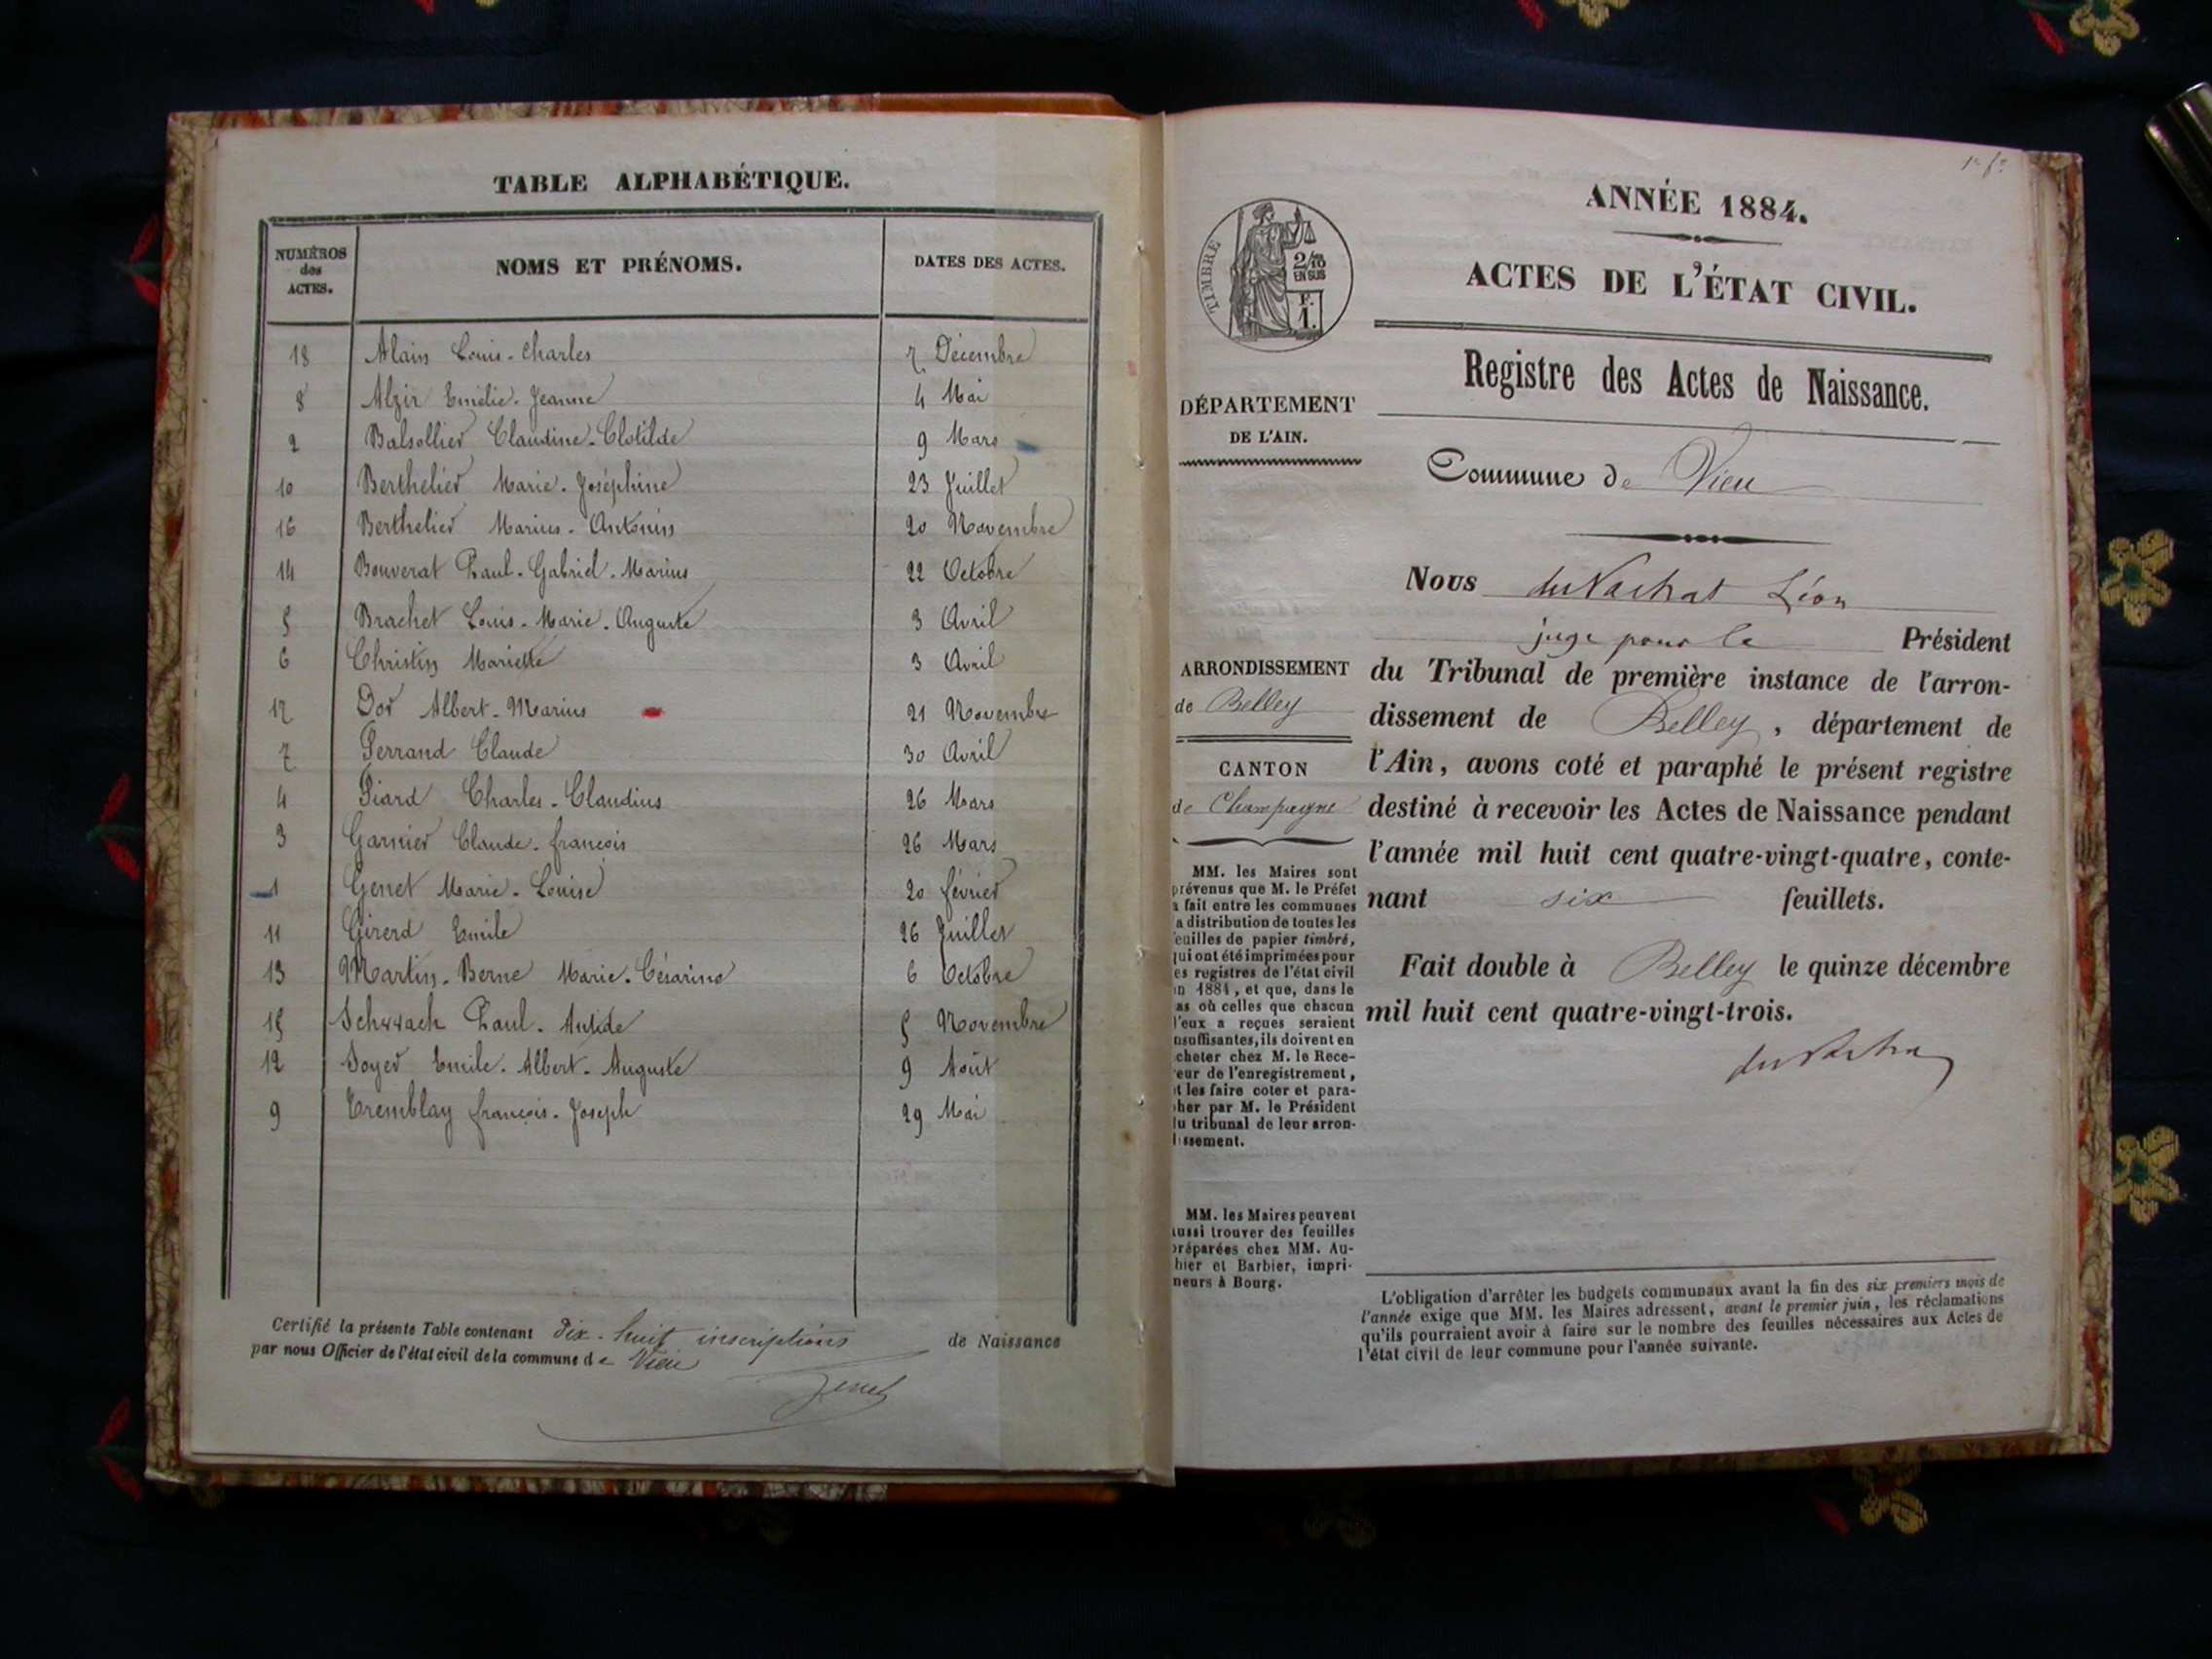 TABLE ALPHABÉTIQUE.
NUMÉROS des ACTES. NOMS ET PRÉNOMS. DATES DES ACTES.
18 Alain Louis-Charles 7 Décembre
8 Alzir Emélie-Jeanne 4 Mai
2 Balsollier Claudine-Clotilde 9 Mars
10 Berthelier Marie-Joséphine 23 Juillet
16 Berthelier Marius-Antonin 20 Novembre
14 Bouverat Paul-Gabriel-Marius 22 Octobre
5 Brachet Louis-Marie-Auguste 3 Avril
6 Christin Mariette 3 Avril
17 Dor Albert-Marius 21 Novembre
7 Ferrand Claude 30 Avril
4 Fiard Charles-Claudius 26 Mars
3 Garnier Claude-françois 26 Mars
1 Genet Marie-Louise 20 février
11 Girerd Emile 26 Juillet
13 Martin-Berne Marie-Césarine 6 Octobre
15 Schwach Paul-Antide 5 Novembre
12 Soyer Emile-Albert-Auguste 9 Août
9 Tremblay françois-Joseph 29 Mai
Certifié la présente Table contenant dix-huit inscriptions de Naissance
par nous Officier de l'état civil de la commune de Vieu
Genet
1er fo
ANNÉE 1884.
ACTES DE L'ÉTAT CIVIL.
TIMBRE
2/10
EN SUS
F.
1.
Registre des Actes de Naissance.
DÉPARTEMENT
DE L'AIN.
Commune de Vieu
Nous
Léon
juge pour le Président
du Tribunal de première instance de l'arron-
dissement de Belley, département de
l'Ain, avons coté et paraphé le présent registre
destiné à recevoir les Actes de Naissance pendant
l'année mil huit cent quatre-vingt-quatre, conte-
nant six feuillets.
Fait double à Belley le quinze décembre
mil huit cent quatre-vingt-trois.
ARRONDISSEMENT
de Belley
CANTON
de Champagne
MM. les Maires sont
prévenus que M. le Préfet
a fait entre les communes
la distribution de toutes les
feuilles de papier timbré,
qui ont été imprimées pour
les registres de l'état civil
en 1884, et que, dans le
cas où celles que chacun
d'eux a reçues seraient
insuffisantes, ils doivent en
acheter chez M. le Rece-
veur de l'enregistrement,
et les faire coter et para-
pher par M. le Président
du tribunal de leur arron-
dissement.
MM. les Maires peuvent
aussi trouver des feuilles
préparées chez MM. Au-
thier et Barbier, impri-
meurs à Bourg.
L'obligation d'arrêter les budgets communaux avant la fin des six premiers mois de
l'année exige que MM. les Maires adressent, avant le premier juin, les réclamations
qu'ils pourraient avoir à faire sur le nombre des feuilles nécessaires aux Actes de
l'état civil de leur commune pour l'année suivante.